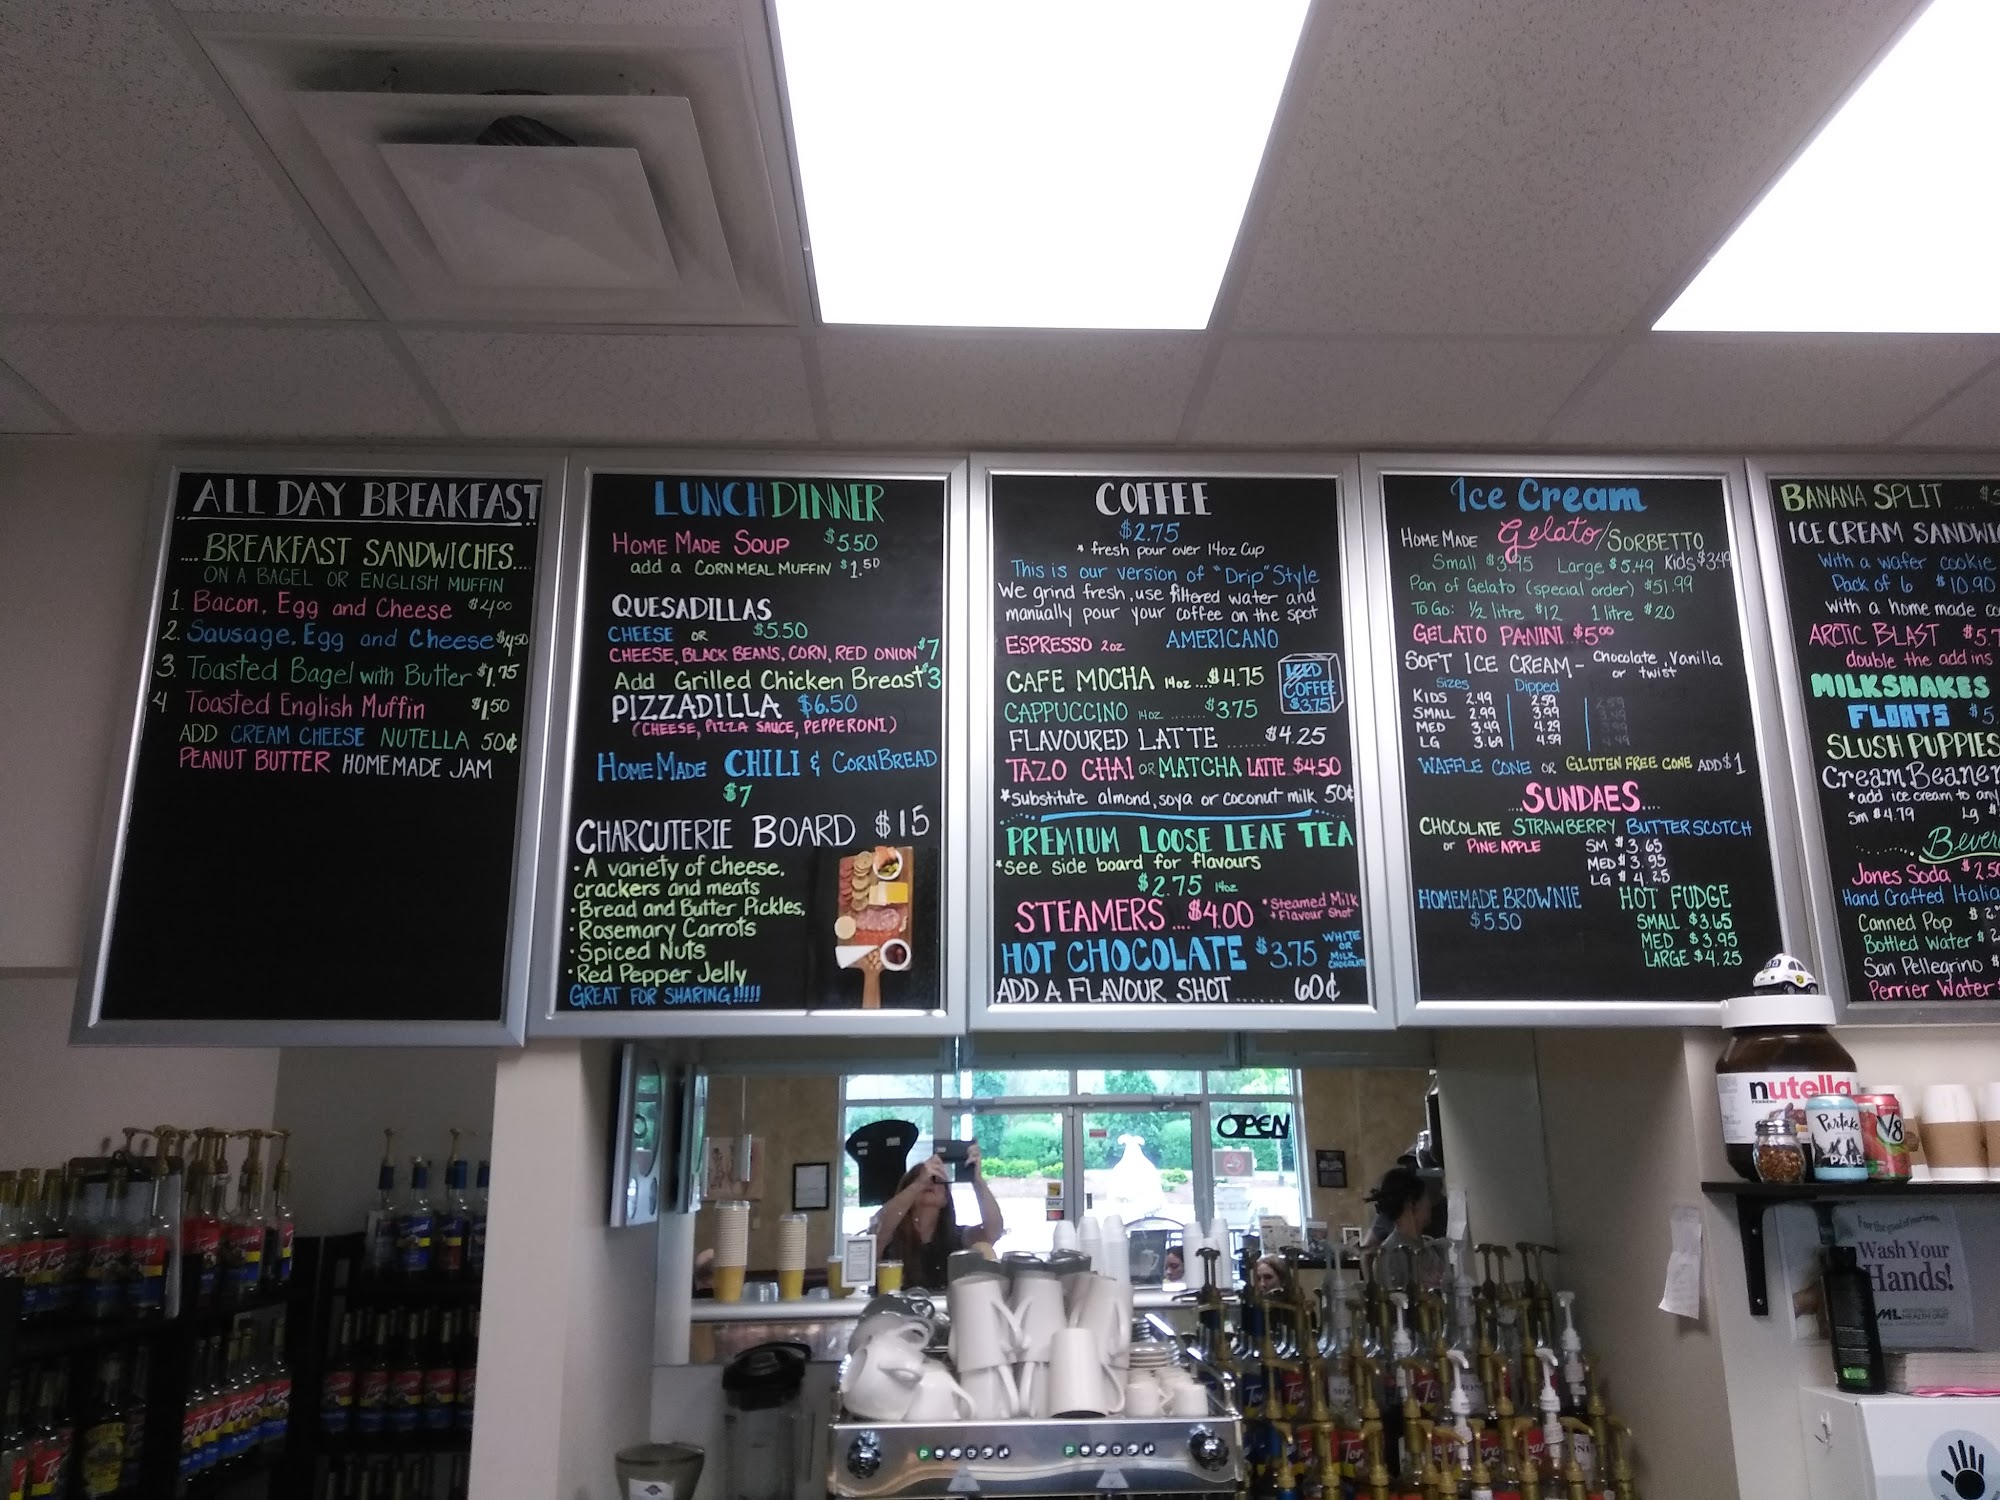 ALL DAY BREAKFAST
.... BREAKFAST SANDWICHES....
ON A BAGEL OR ENGLISH MUFFIN
1. Bacon, Egg and Cheese $4.00
2. Sausage, Egg and Cheese $4.50
3. Toasted Bagel with Butter $1.75
4 Toasted English Muffin $1.50
ADD CREAM CHEESE NUTELLA 50¢
PEANUT BUTTER HOMEMADE JAM
LUNCH DINNER
HOME MADE SOUP $5.50
add a CORNMEAL MUFFIN $1.50
QUESADILLAS
CHEESE OR $5.50
CHEESE, BLACK BEANS, CORN, RED ONION $7
Add Grilled Chicken Breast $3
PIZZADILLA $6.50
(CHEESE, PIZZA SAUCE, PEPPERONI)
HOME MADE CHILI & CORNBREAD
$7
CHARCUTERIE BOARD $15
• A variety of cheese,
crackers and meats
• Bread and Butter Pickles,
• Rosemary Carrots
• Spiced Nuts
• Red Pepper Jelly
GREAT FOR SHARING!!!!!
COFFEE
$2.75
* fresh pour over 14oz Cup
This is our version of "Drip" Style
We grind fresh, use filtered water and
manually pour your coffee on the spot
ESPRESSO 2oz AMERICANO
CAFE MOCHA 14oz ....$4.75
CAPPUCCINO 14oz ........$3.75
ICED
COFFEE
$3.75
FLAVOURED LATTE .......$4.25
TAZO CHAI OR MATCHA LATTE $4.50
*substitute almond, soya or coconut milk 50¢
PREMIUM LOOSE LEAF TEA
*See side board for flavours
$2.75 14oz
STEAMERS .... $4.00 *Steamed Milk
+ Flavour Shot
HOT CHOCOLATE $3.75 WHITE
OR
MILK
CHOCOLATE
ADD A FLAVOUR SHOT ...... 60¢
Ice Cream
HOME MADE Gelato/SORBETTO
Small $3.95 Large $5.49 Kids $3.49
Pan of Gelato (special order) $51.99
To Go: ½ litre $12 1 litre $20
GELATO PANINI $5.00
SOFT ICE CREAM - Chocolate, Vanilla
or twist
Sizes Dipped
KIDS 2.49 2.59
SMALL 2.99 3.99
MED 3.49 4.29
LG 3.69 4.59
WAFFLE CONE OR GLUTEN FREE CONE ADD $1
....SUNDAES....
CHOCOLATE STRAWBERRY BUTTERSCOTCH
or PINEAPPLE SM $3.65
MED $3.95
LG $4.25
HOMEMADE BROWNIE
$5.50
HOT FUDGE
SMALL $3.65
MED $3.95
LARGE $4.25
BANANA SPLIT .... $5
ICE CREAM SANDWIC
With a wafer cookie
Pack of 6 $10.90
with a home made co
ARCTIC BLAST $5.7
double the add ins
MILKSHAKES
FLOATS $5.
SLUSH PUPPIES
Cream Beaner
*add ice cream to any
Sm $4.79 Lg $
Bever
Jones Soda $2.50
Hand Crafted Italia
Canned Pop $2.
Bottled Water $2
San Pellegrino $
Perrier Water $
nutella
Partake
PALE
V8
OPEN
Wash Your
Hands!
HEALTH UNIT
Torani